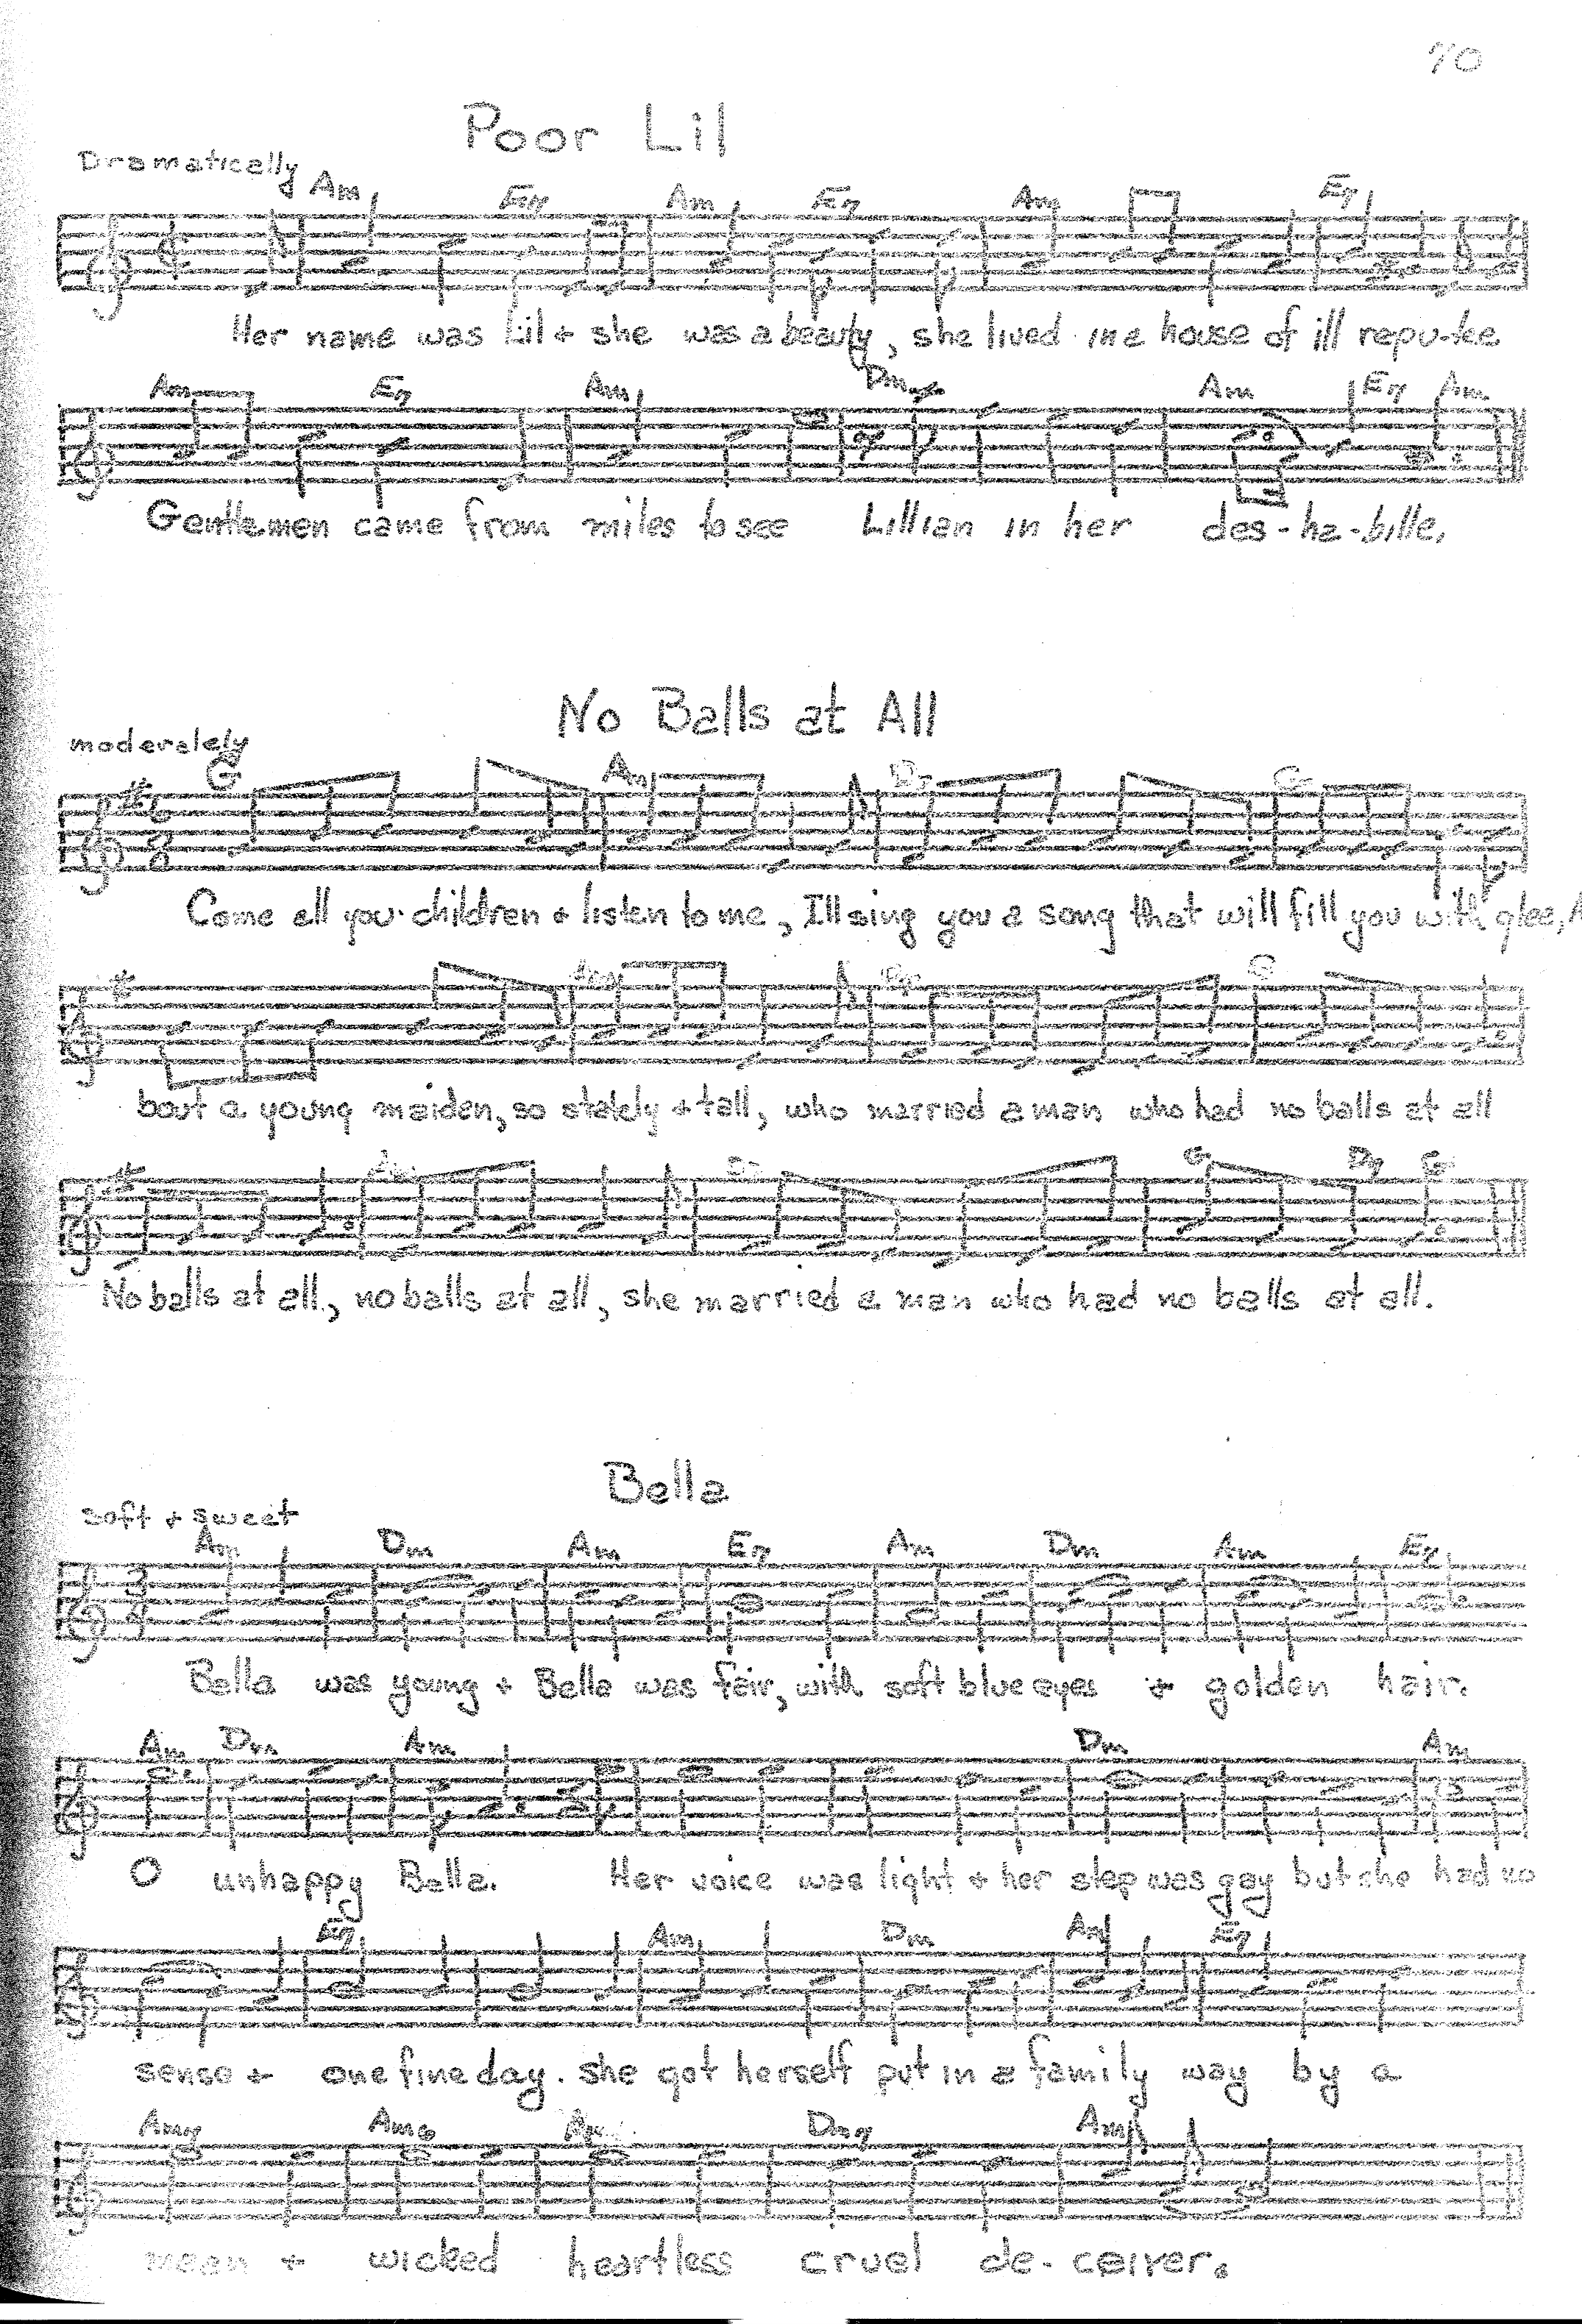 70
Poor Lil
Dramatically
Am E7 Am E7 Am E7
Her name was Lil + she was a beauty, she lived in a house of ill repu-tee
Am E7 Am Dm Am E7 Am
Gentlemen came from miles to see Lillian in her des-ha-bille.
No Balls at All
moderately
G Am D7 G
Come all you children + listen to me, I'll sing you a song that will fill you with glee, A
Am D7 G
bout a young maiden, so stately + tall, who married a man who had no balls at all
Am D7 G D7 G
No balls at all, no balls at all, she married a man who had no balls at all.
Bella
soft + sweet
Am Dm Am E7 Am Dm Am E7
Bella was young + Bella was fair, with soft blue eyes + golden hair.
Am Dm Am Dm Am
O unhappy Bella. Her voice was light + her step was gay but she had no
E7 Am Dm Am E7
sense + one fine day. she got herself put in a family way by a
Am7 Am6 Dm7 Am
mean + wicked heartless cruel de-ceiver.